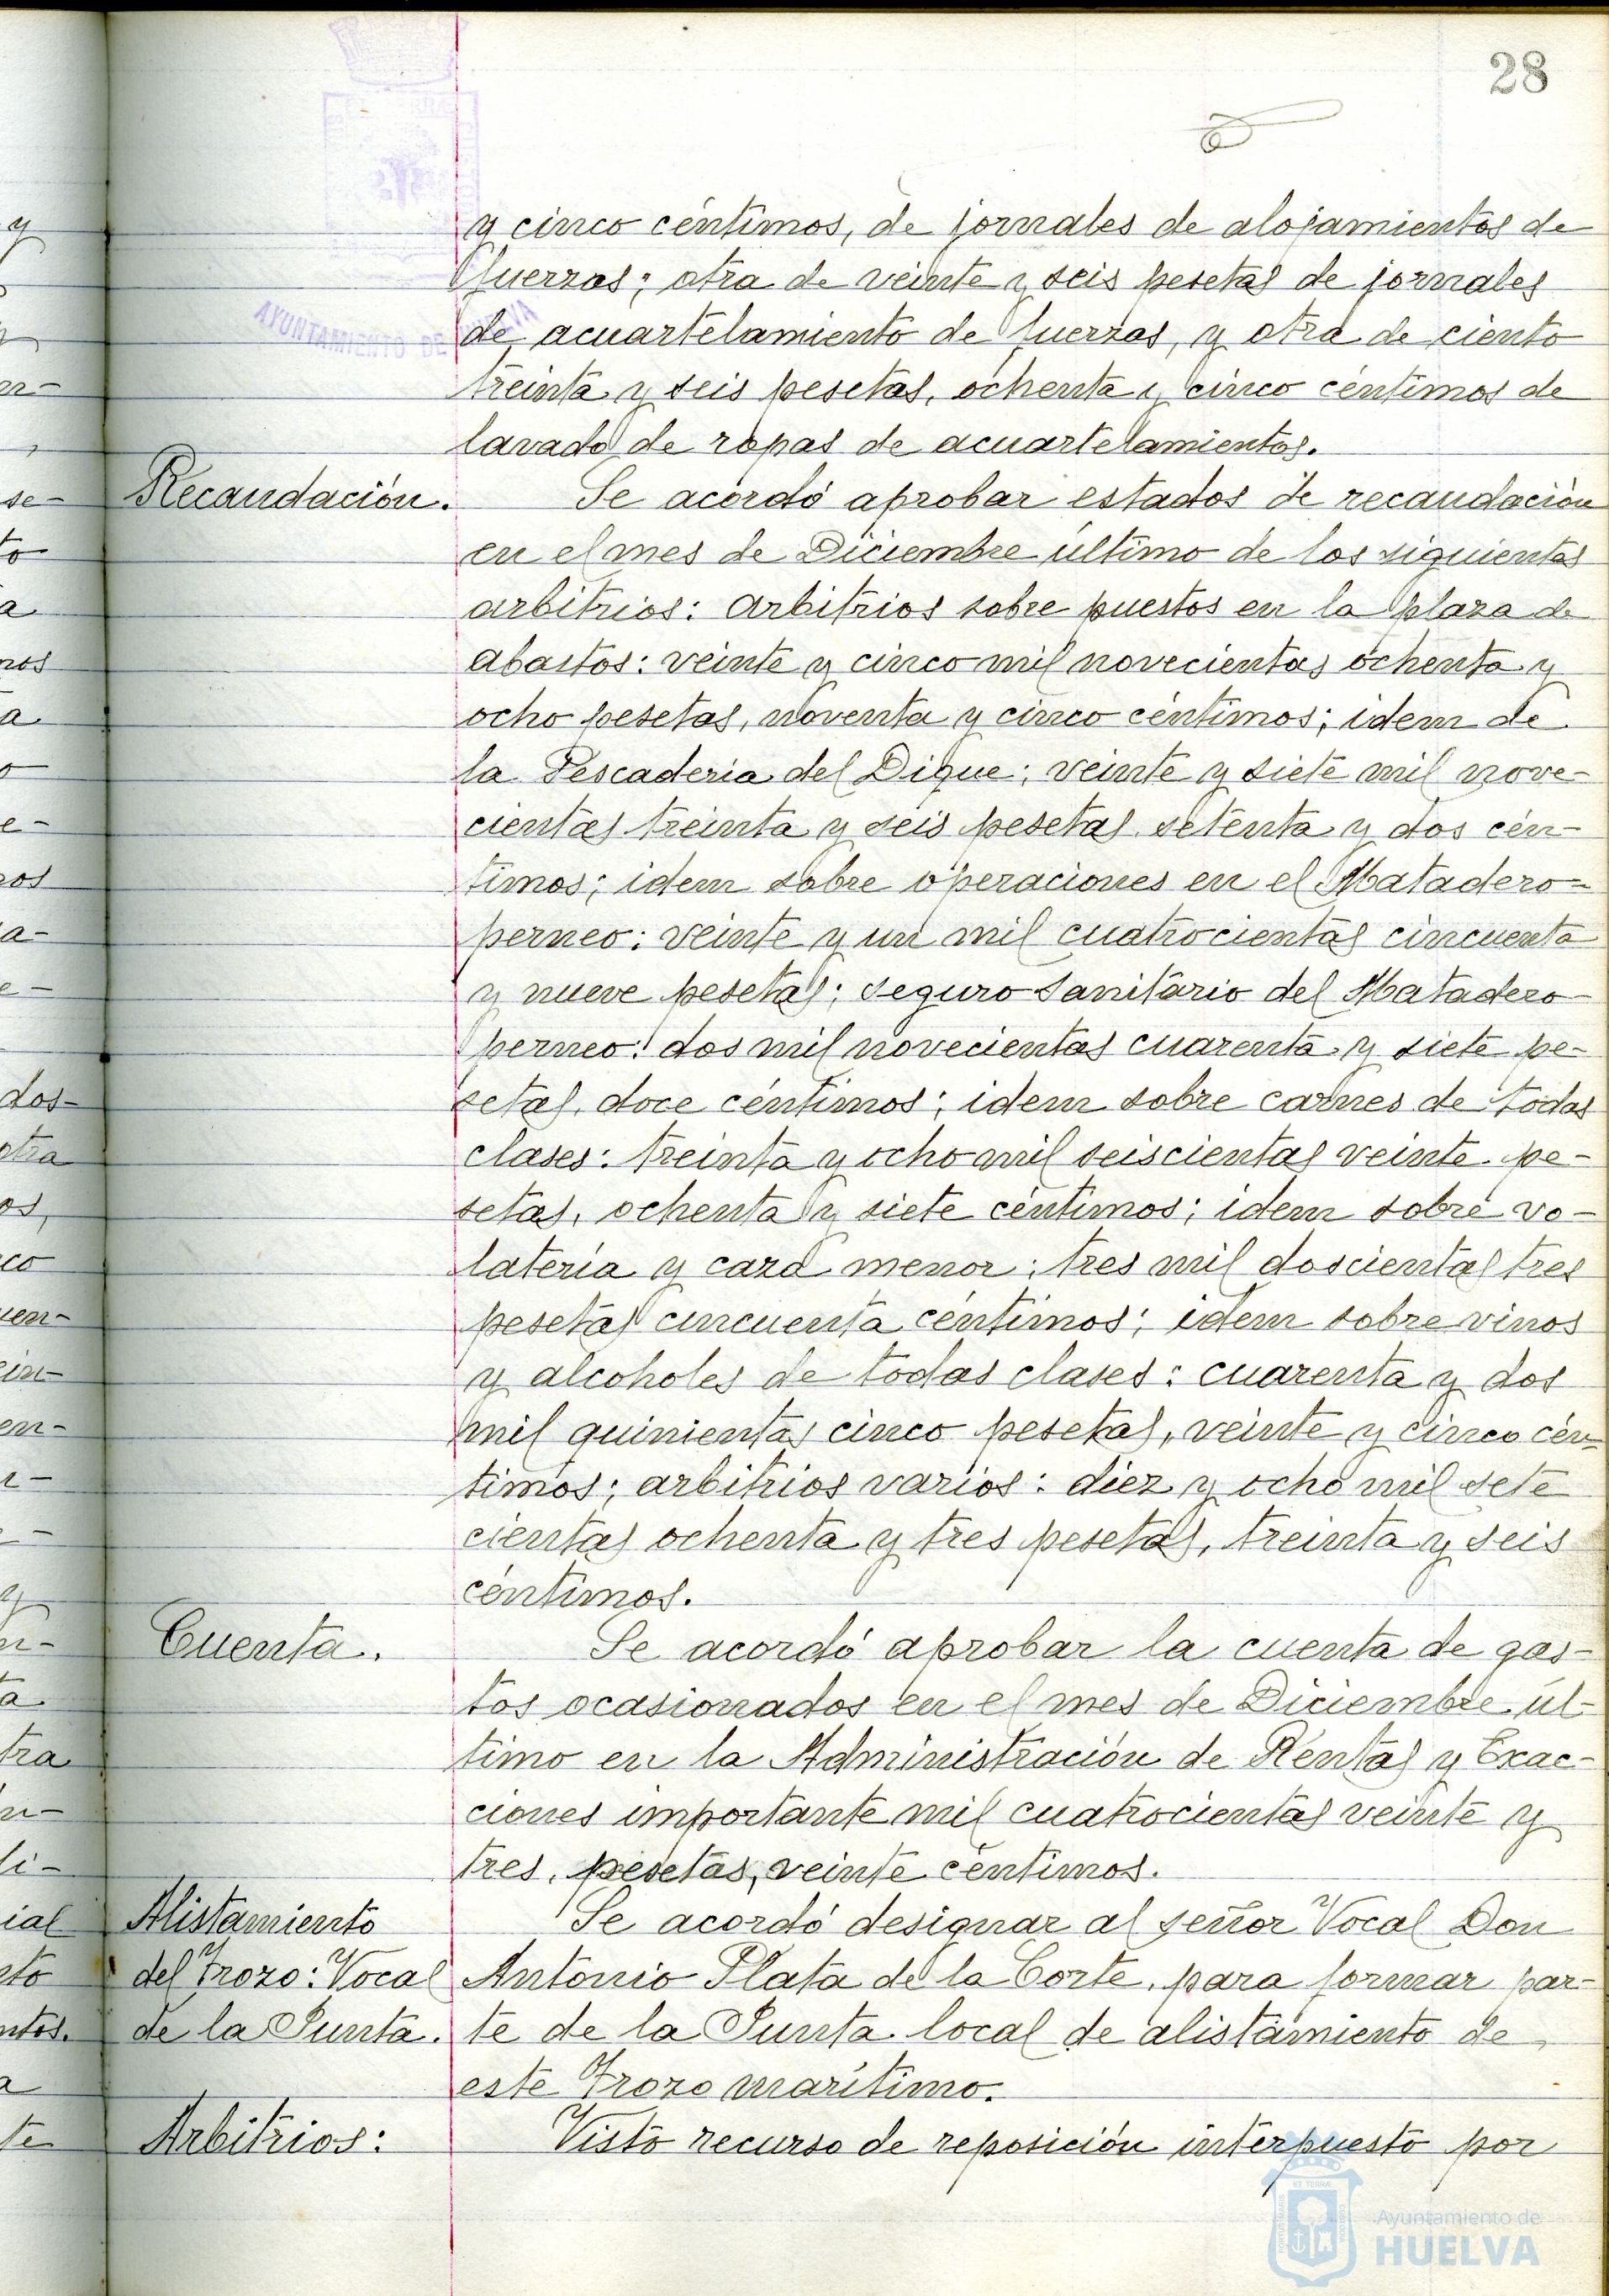 28
y cinco céntimos, de jornales de alojamientos de
fuerzas; otra de veinte y seis pesetas de jornales
de acuartelamiento de fuerzas, y otra de ciento
treinta y seis pesetas, ochenta y cinco céntimos de
lavado de ropas de acuartelamientos.
Recaudación. Se acordó aprobar estados de recaudación
en el mes de Diciembre último de los siguientes
arbitrios: arbitrios sobre puestos en la plaza de
abastos: veinte y cinco mil novecientas ochenta y
ocho pesetas, noventa y cinco céntimos; idem de
la Pescaderia del Dique; veinte y siete mil nove-
cientas treinta y seis pesetas setenta y dos cén-
timos; idem sobre operaciones en el Matadero-
perneo: veinte y un mil cuatrocientas cincuenta
y nueve pesetas; seguro sanitario del Matadero-
perneo: dos mil novecientas cuarenta y siete pe-
setas, doce céntimos; idem sobre carnes de todas
clases: treinta y ocho mil seiscientas veinte pe-
setas, ochenta y siete céntimos; idem sobre vo-
latería y caza menor; tres mil doscientas tres
pesetas cincuenta céntimos; idem sobre vinos
y alcoholes de todas clases: cuarenta y dos
mil quinientas cinco pesetas, veinte y cinco cén-
timos; arbitrios varios: diez y ocho mil sete
cientas ochenta y tres pesetas, treinta y seis
céntimos.
Cuenta. Se acordó aprobar la cuenta de gas-
tos ocasionados en el mes de Diciembre úl-
timo en la Administración de Rentas y Exac-
ciones importante mil cuatrocientas veinte y
tres, pesetas, veinte céntimos.
Alistamiento Se acordó designar al señor Vocal Don
del Trozo: Vocal Antonio Plata de la Corte, para formar par-
de la Junta. te de la Junta local de alistamiento de
este Trozo marítimo.
Arbitrios: Visto recurso de reposición interpuesto por
AYUNTAMIENTO DE HUELVA
Ayuntamiento de
HUELVA